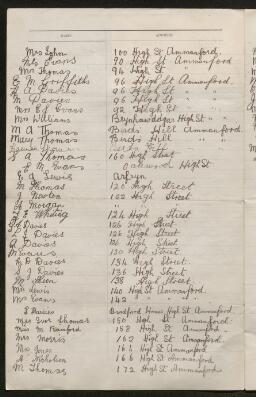 NAMES ADDRESS
Mrs John 100 High St Ammanford.
Mrs Evans 90 High St Ammanford
Mrs Thomas 94 High St "
E. M. Griffiths 96 High St Ammanford.
A Davies 96 High St " "
M Davies 96 High St " "
Mrs E J Evans 92 High St "
Mrs Williams Brynhawddgar High St " "
M A Thomas Birds Hill Ammanford
Mary Thomas Birds Hill "
S A Thomas 160 High Street
E M Evans Oakwood High St
E A Lewis Arfryn
M Thomas 120 High Street
J Newton 122 High Street
A Morgan " " "
F E Whiting 124 High Street
Davies 126 High Street
J Davies 126 High Street
A Davies 126 High Street
M Davies 130 High Street
E P Davies 134 High Street.
S J Davies 136 High Street
M Steen 138 High Street
Mrs Lewis 140 High St. Ammanford.
Mrs Evans 142 " " "
S Davies Bradford House High St Ammanford.
Mrs Thomas 150 High St Ammanford.
Mrs M Rainford 158 High St Ammanford.
Mrs Morris 162 High St Ammanford.
Mrs Jones 164 High St Ammanford.
A Nicholson 166 High St Ammanford.
M Thomas 172 High St Ammanford.